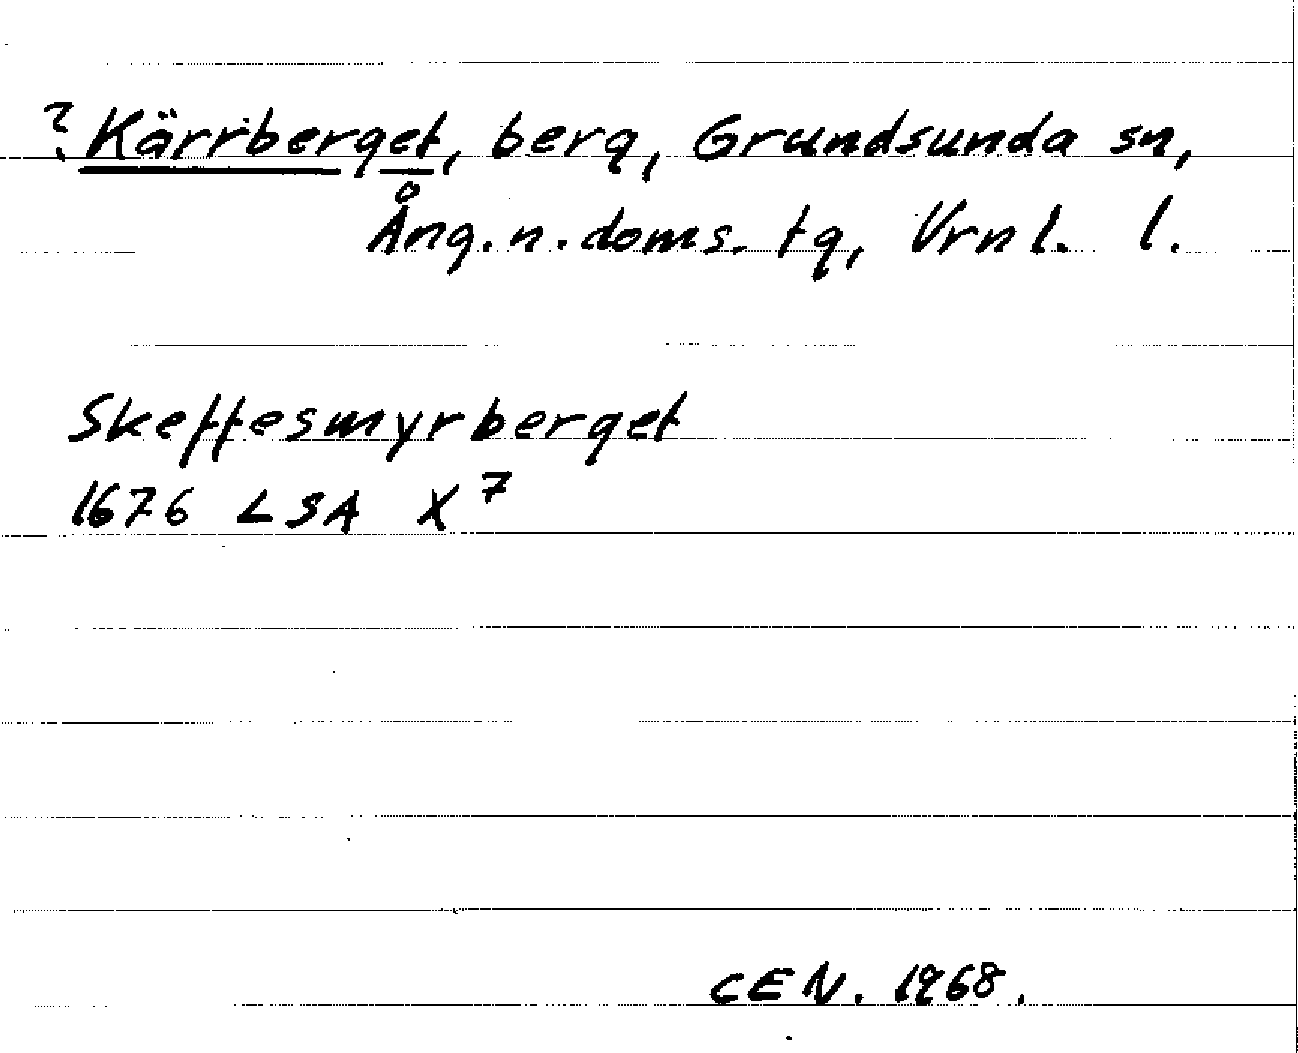 ? Kärrberget, berg, Grundsunda sn,
Ång. n. doms. tg, Vrnl. l.
Skeffesmyrberget
1676 LSA X⁷
CEN. 1968.